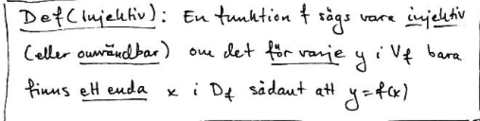 Def (Injektiv): En funktion f sägs vara injektiv
(eller omvändbar) om det för varje y i Vf bara
finns ett enda x i Df sådant att y=f(x)